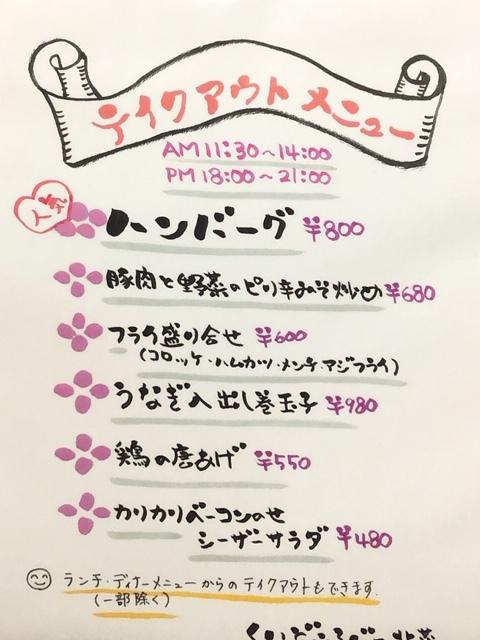 テイクアウトメニュー
AM 11:30〜14:00
PM 18:00〜21:00
人気
ハンバーグ ¥800
豚肉と野菜のピリ辛みそ炒め ¥680
フライ盛り合せ ¥600
(コロッケ・ハムカツ・メンチ・アジフライ)
うなぎ入出し巻玉子 ¥980
鶏の唐あげ ¥550
カリカリベーコンのせ
シーザーサラダ ¥480
ランチ・ディナーメニューからのテイクアウトもできます.
(一部除く)